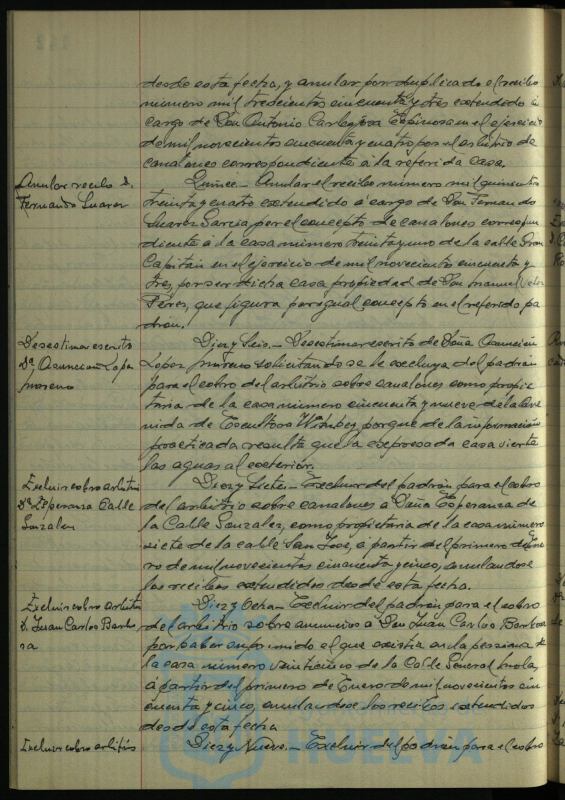 desde esta fecha, y anular por duplicado el recibo
número mil trescientos cincuenta y tres extendido á
cargo de Don Antonio Carbajosa Espinosa en el ejercicio
de mil novecientos cincuenta y cuatro por el arbitrio de
canalones correspondiente á la referida casa.
Anular recibo D.
Fernando Suarez
Quince.- Anular el recibo número mil quinientos
treinta y cuatro extendido á cargo de Don Fernando
Suarez Garcia por el concepto de canalones correspon
diente á la casa número treinta y uno de la calle Gran
Capitán en el ejercicio de mil novecientos cincuenta y
tres, por ser dicha casa propiedad de Don Manuel
Pérez, que figura por igual concepto en el referido pa
drón.
Desestimar escrito
Dª Asunción Lopez
Moreno
Diez y Seis.- Desestimar escrito de Doña Asunción
Lopez Moreno solicitando se le excluya del padrón
para el cobro del arbitrio sobre canalones como propie
taria de la casa número cincuenta y nueve de la Ave
nida de Escultora Whitney, porque de la información
practicada resulta que la expresada casa vierte
las aguas al exterior.
Excluir cobro arbitrio
Dª Esperanza Calle
Gonzalez
Diez y Siete.- Excluir del padrón para el cobro
del arbitrio sobre canalones á Doña Esperanza de
la Calle Gonzalez, como propietaria de la casa número
siete de la calle San José, á partir del primero de Ene
ro de mil novecientos cincuenta y cinco, anulandose
los recibos extendidos desde esta fecha.
Excluir cobro arbitrio
D. Juan Carlos Barbo
sa
Diez y Ocho.- Excluir del padrón para el cobro
del arbitrio sobre anuncios á Don Juan Carlos Barbosa
por haber suprimido el que existia en la persiana de
la casa número veinticinco de la Calle General Mola,
á partir del primero de Enero de mil novecientos cin
cuenta y cinco, anulandose los recibos extendidos
desde esta fecha
Excluir cobro arbitrio
Diez y Nueve.- Excluir del padrón para el cobro
HUELVA